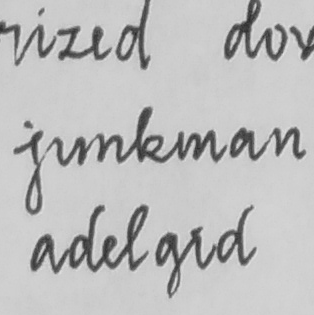 rized dov
junkman
adelgid